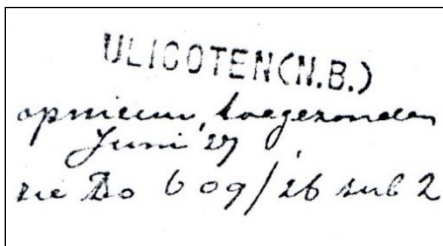 ULICOTEN (N.B.)
opnieuw toegezonden
Juni '27
zie Do 609/26 sub 2